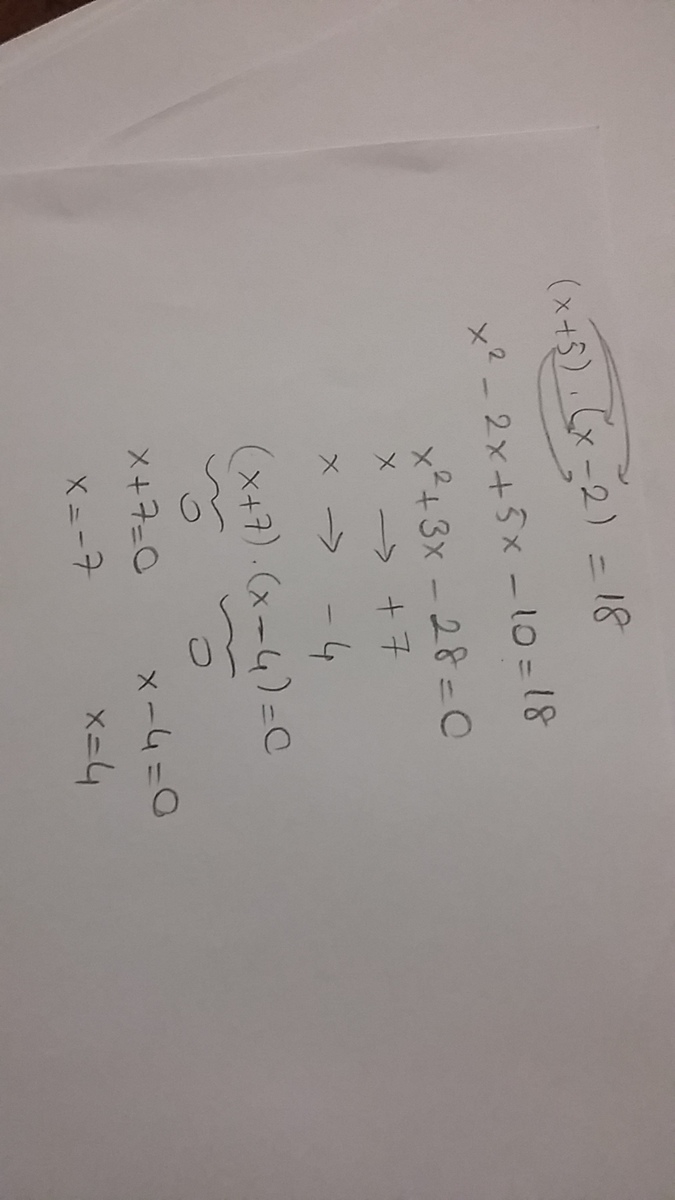 (x+5)·(x-2)=18
x²-2x+5x-10=18
x²+3x-28=0
x → +7
x → -4
(x+7)·(x-4)=0
0 0
x+7=0 x-4=0
x=-7 x=4